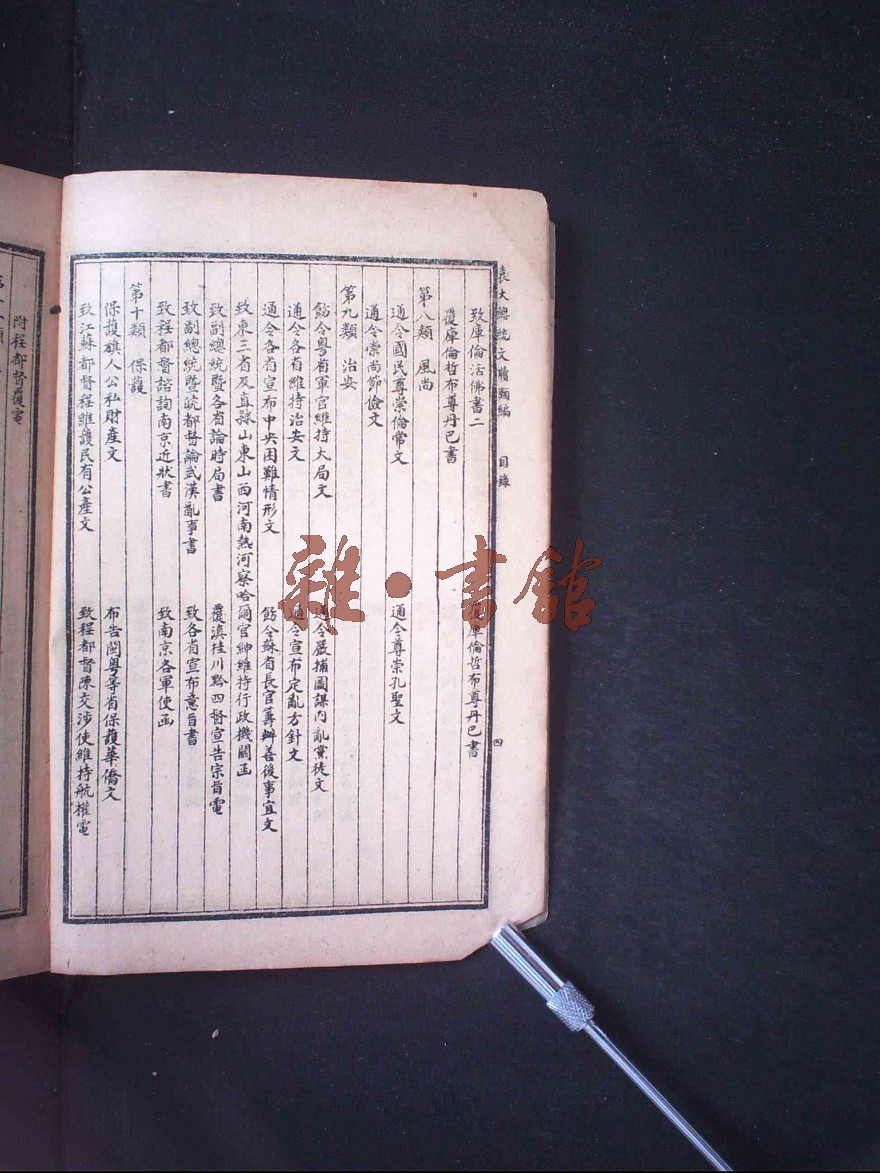 袁大總統文牘類編 目錄 四
致庫倫活佛書二 庫倫哲布尊丹巴書
覆庫倫哲布尊丹巴書
第八類 風尚
通令國民尊崇倫常文 通令尊崇孔聖文
通令崇尚節儉文
第九類 治安
飭令粵省軍官維持大局文 通令嚴捕圖謀內亂黨徒文
通令各省維持治安文 通令宣布定亂方針文
通令各省宣布中央困難情形文 飭令蘇省長官籌辦善後事宜文
致東三省及直隸山東山西河南熱河察哈爾官紳維持行政機關函
致副總統暨各省論時局書 覆滇桂川黔四督宣告宗旨電
致副總統暨皖都督論武漢亂事書 致各省宣布意旨書
致程都督諮詢南京近狀書 致南京各軍使函
第十類 保護
保護旗人公私財產文 布告閩粵等省保護華僑文
致江蘇都督程維護民有公產文 致程都督陳交涉使維持航權電
附程都督覆電
雜·書館